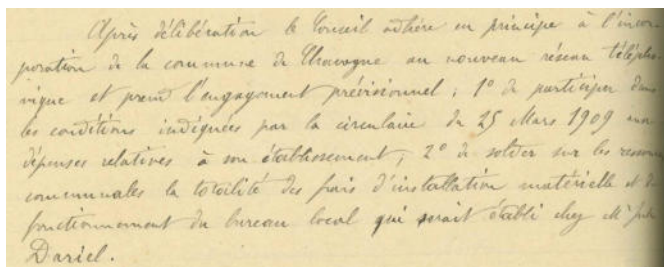 Après délibération le Conseil adhère en principe à l'incor-
poration de la commune de Chavagne au nouveau réseau télépho-
nique et prend l'engagement prévisionnel ; 1° de participer dans
les conditions indiquées par la circulaire du 25 Mars 1909 aux
dépenses relatives à son établissement ; 2° de solder sur les ressour
communales la totalité des frais d'installation matérielle et de
fonctionnement du bureau local qui serait établi chez Mr
Dariel.